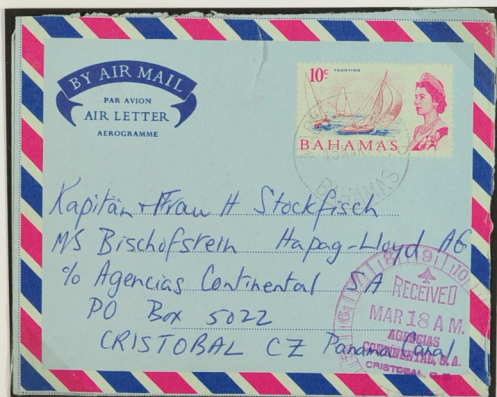 BY AIR MAIL
PAR AVION
AIR LETTER
AEROGRAMME
10c
YACHTING
BAHAMAS
BAHAMAS
Kapitän + Frau H Stockfisch
M/S Bischofstein Hapag-Lloyd AG
c/o Agencias Continental SA
PO Box 5022
CRISTOBAL CZ Panama Canal
8 9 10
RECEIVED
MAR 18 A M.
AGENCIAS
CONTINENTAL, S. A.
CRISTOBAL, C. Z.